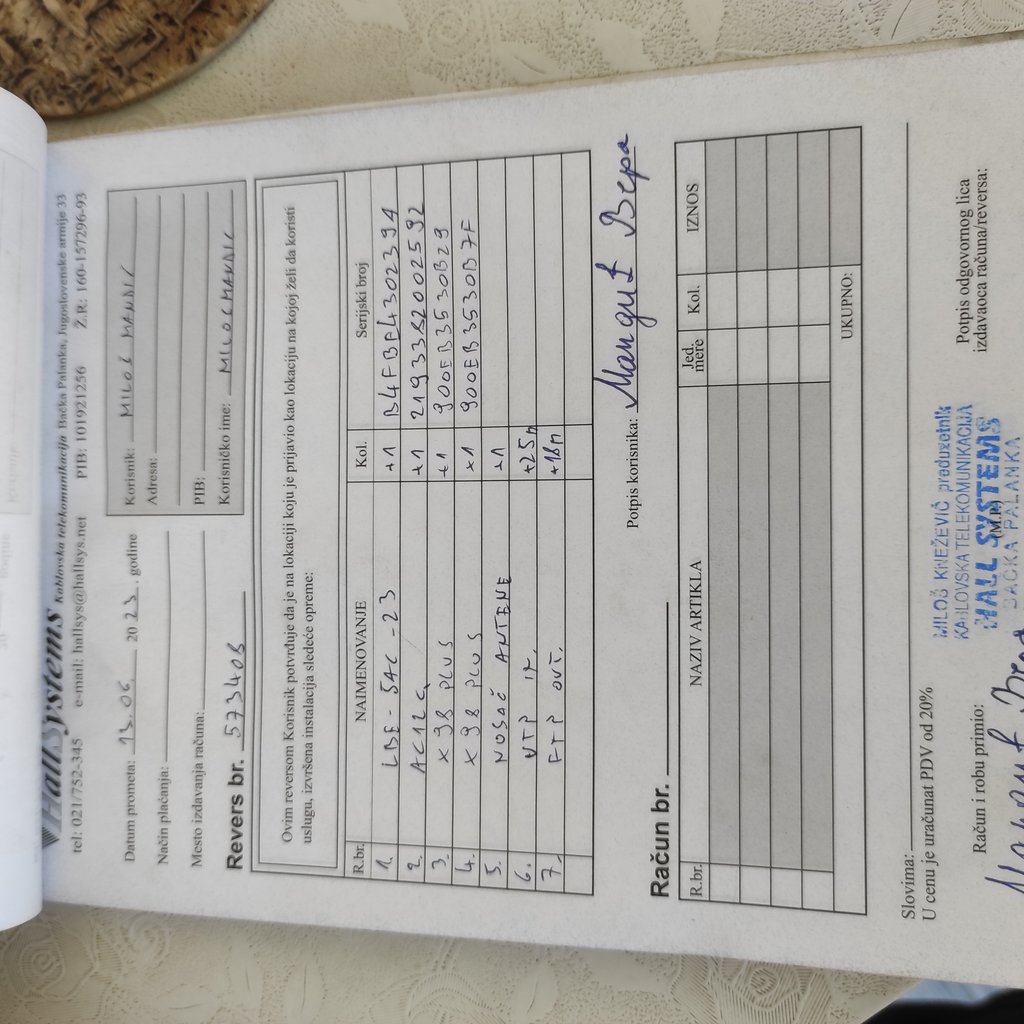 HallSystems Kablovska telekomunikacija Bačka Palanka, Jugoslovenske armije 33
tel: 021/752-345 e-mail: hallsys@hallsys.net PIB: 101921256 Ž.R: 160-157296-93
Datum prometa: 13.06. 2023. godine
Način plaćanja:
Mesto izdavanja računa:
Korisnik: MILOŠ MANDIĆ
Adresa:
PIB:
Korisničko ime: MILOSMANDIC
Revers br. 573406
Ovim reversom Korisnik potvrđuje da je na lokaciji koju je prijavio kao lokaciju na kojoj želi da koristi
uslugu, izvršena instalacija sledeće opreme:
R.br. NAIMENOVANJE Kol. Serijski broj
1. LBE-5AC-23 +1 B4FBE4302394
2. AC12G +1 2193382002592
3. X98 PLUS +1 900EB3530B29
4. X98 PLUS +1 900EB3530B7F
5. NOSAČ ANTENE +1
6. UTP +25m
7. FTP OUT. +18m
Potpis korisnika: Мандић Вера
Račun br.
R.br. NAZIV ARTIKLA Jed. mere Kol. IZNOS
UKUPNO:
Slovima:
U cenu je uračunat PDV od 20%
Račun i robu primio:
(M.P.)
Potpis odgovornog lica
izdavaoca računa/reversa:
MILOŠ KNEŽEVIĆ preduzetnik
KABLOVSKA TELEKOMUNIKACIJA
HALL SYSTEMS
BAČKA PALANKA